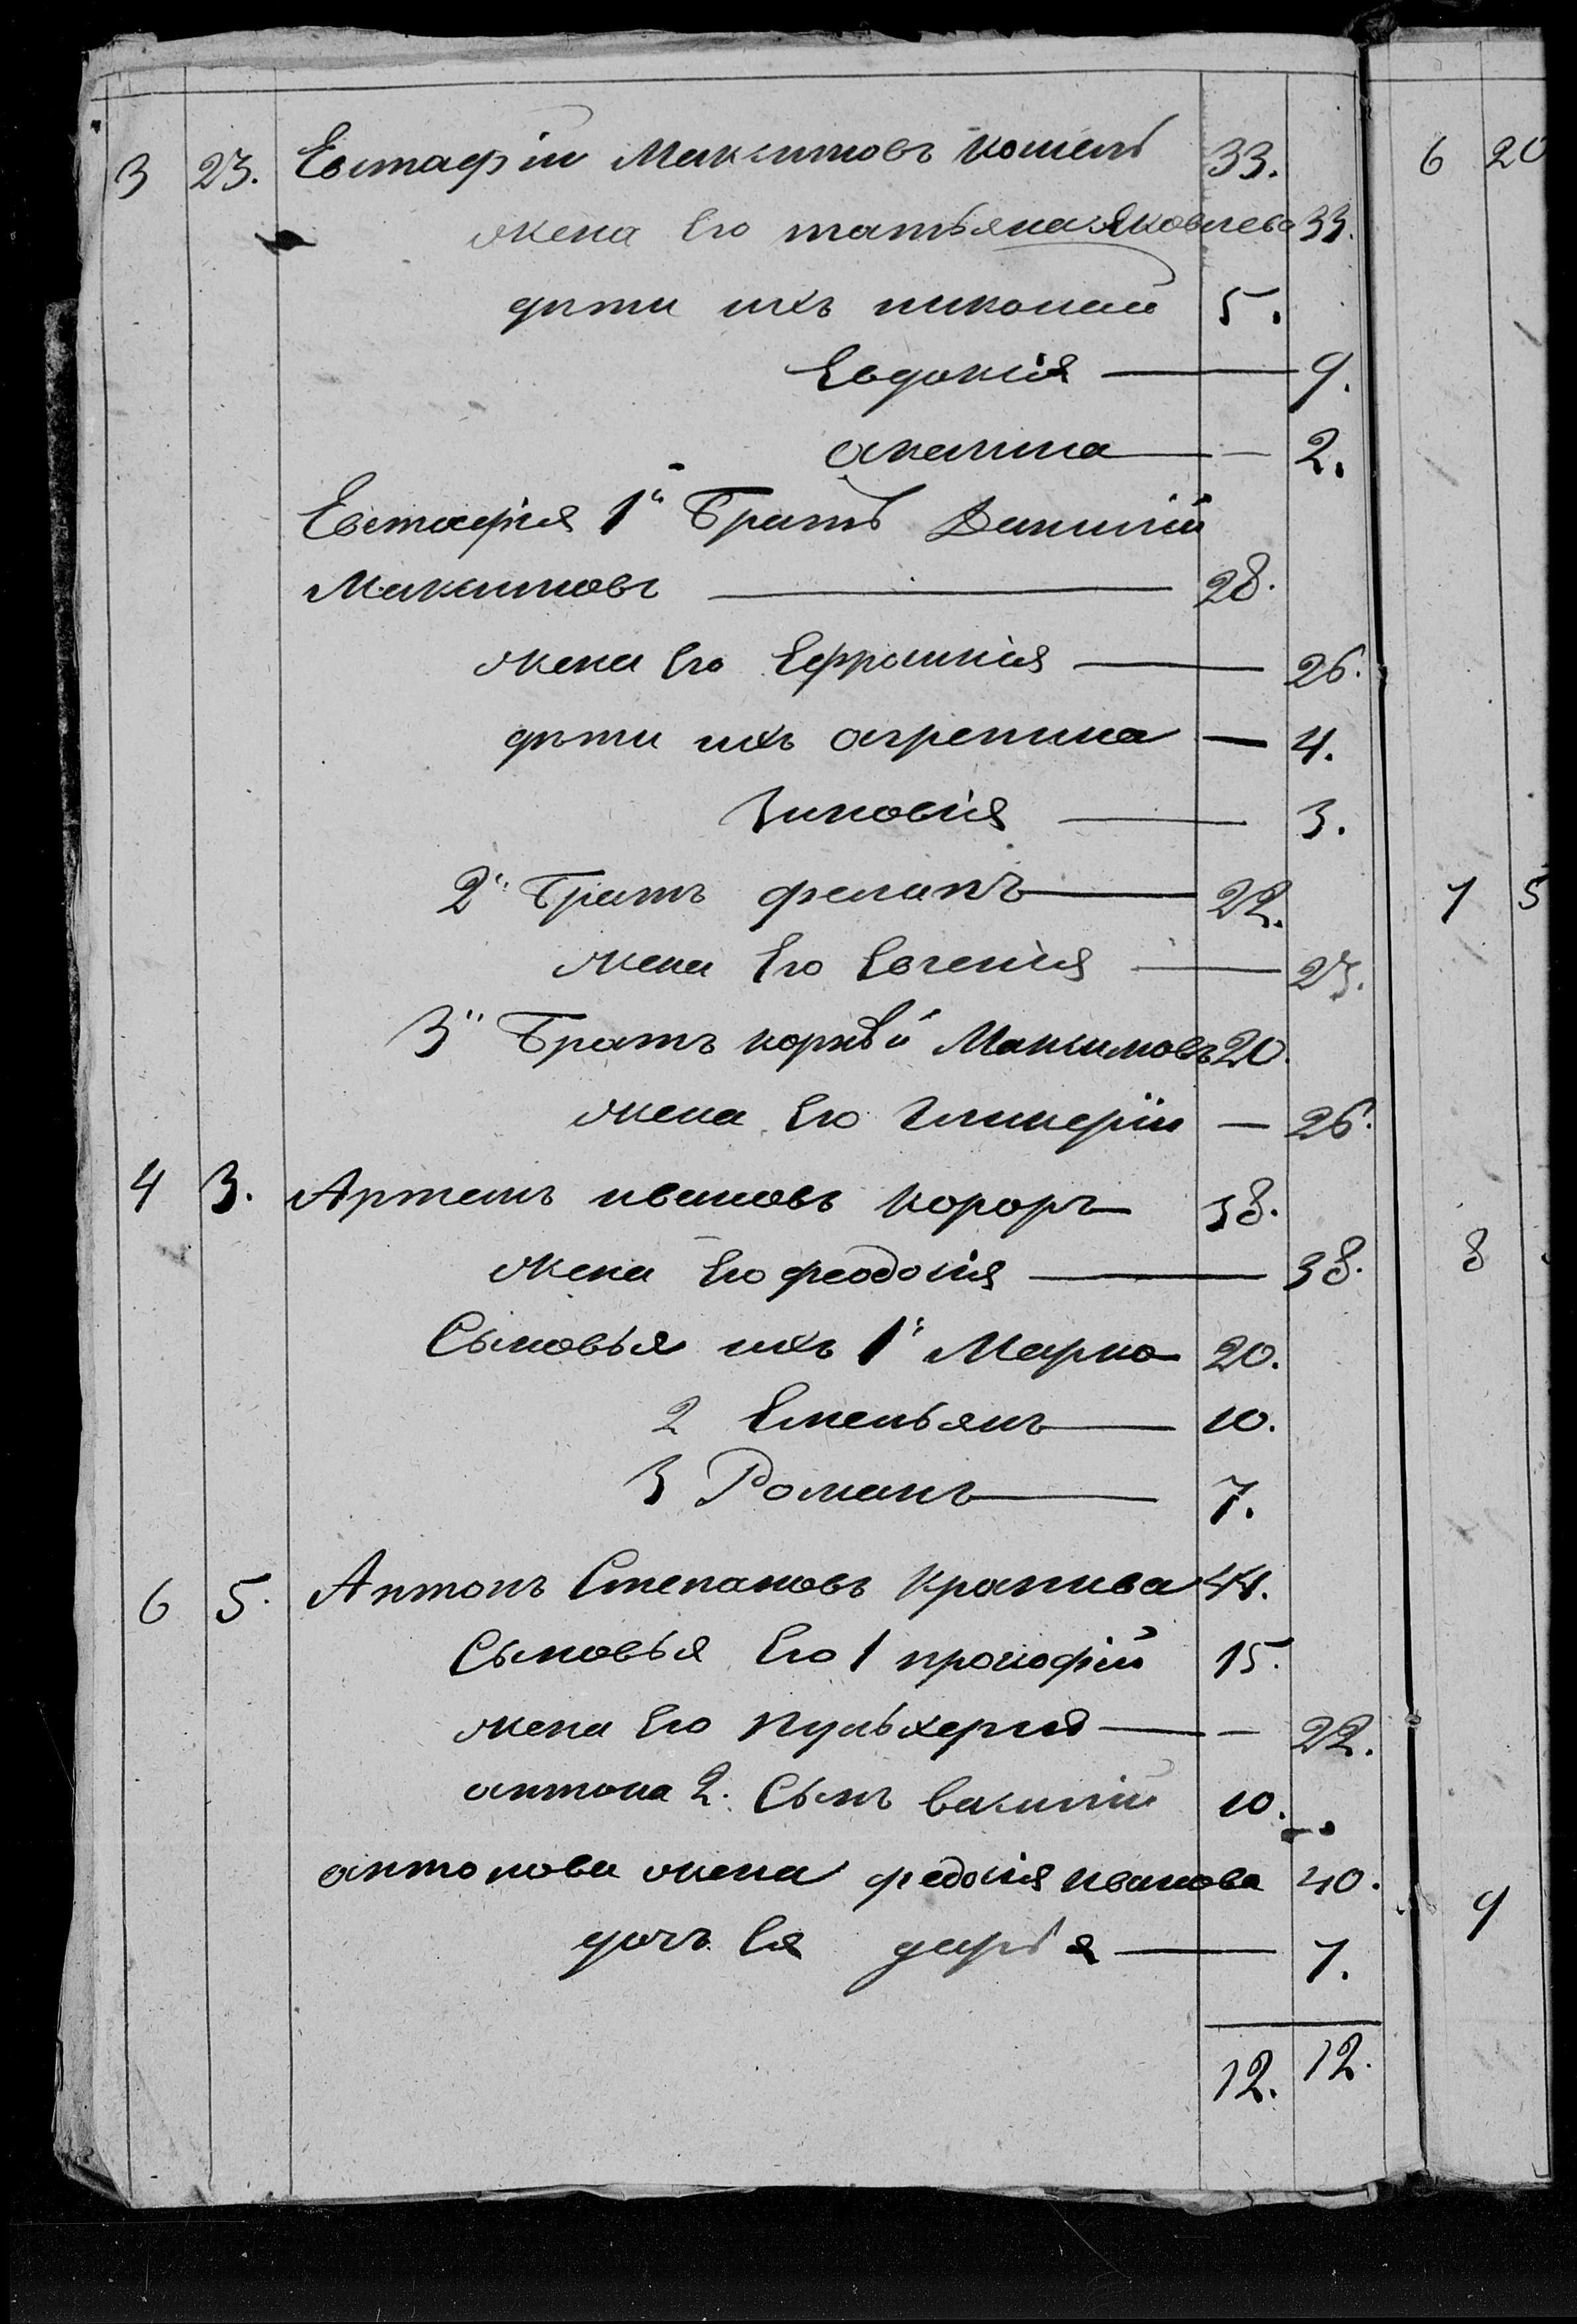 3 23. Евстафiй Максимовъ Кошель 33.
жена Его татьяна Яковлева 33.
дѣти ихъ николай 5.
Евдокiя — 9.
акилина — 2.
Евстафiя 1й Братъ Василiй
Максимовъ — 28.
жена Его Ефросинiя — 26.
дѣти ихъ агрепина — 4.
Зиновiя — 3.
2й Братъ филипъ — 22.
жена Его Евгенiя — 23.
3й Братъ корнѣй Максимовъ 20.
жена Его Гликерiя — 26.
4 3. Артемъ ивановъ 38.
жена Его феодосiя — 38.
Сыновья ихъ 1й Марко 20.
2 Емельянъ — 10.
3 Романъ — 7.
6 5. Антонъ Степановъ Крапива 44.
Сыновья Его 1 прокофiй 15.
жена Его Пульхерiя — 22.
антона 2. Сынъ василiй 10.
антонова жена федосiя иванова 40.
дочь Ея дарья — 7.
12. 12.
6 20
7 5
8
9